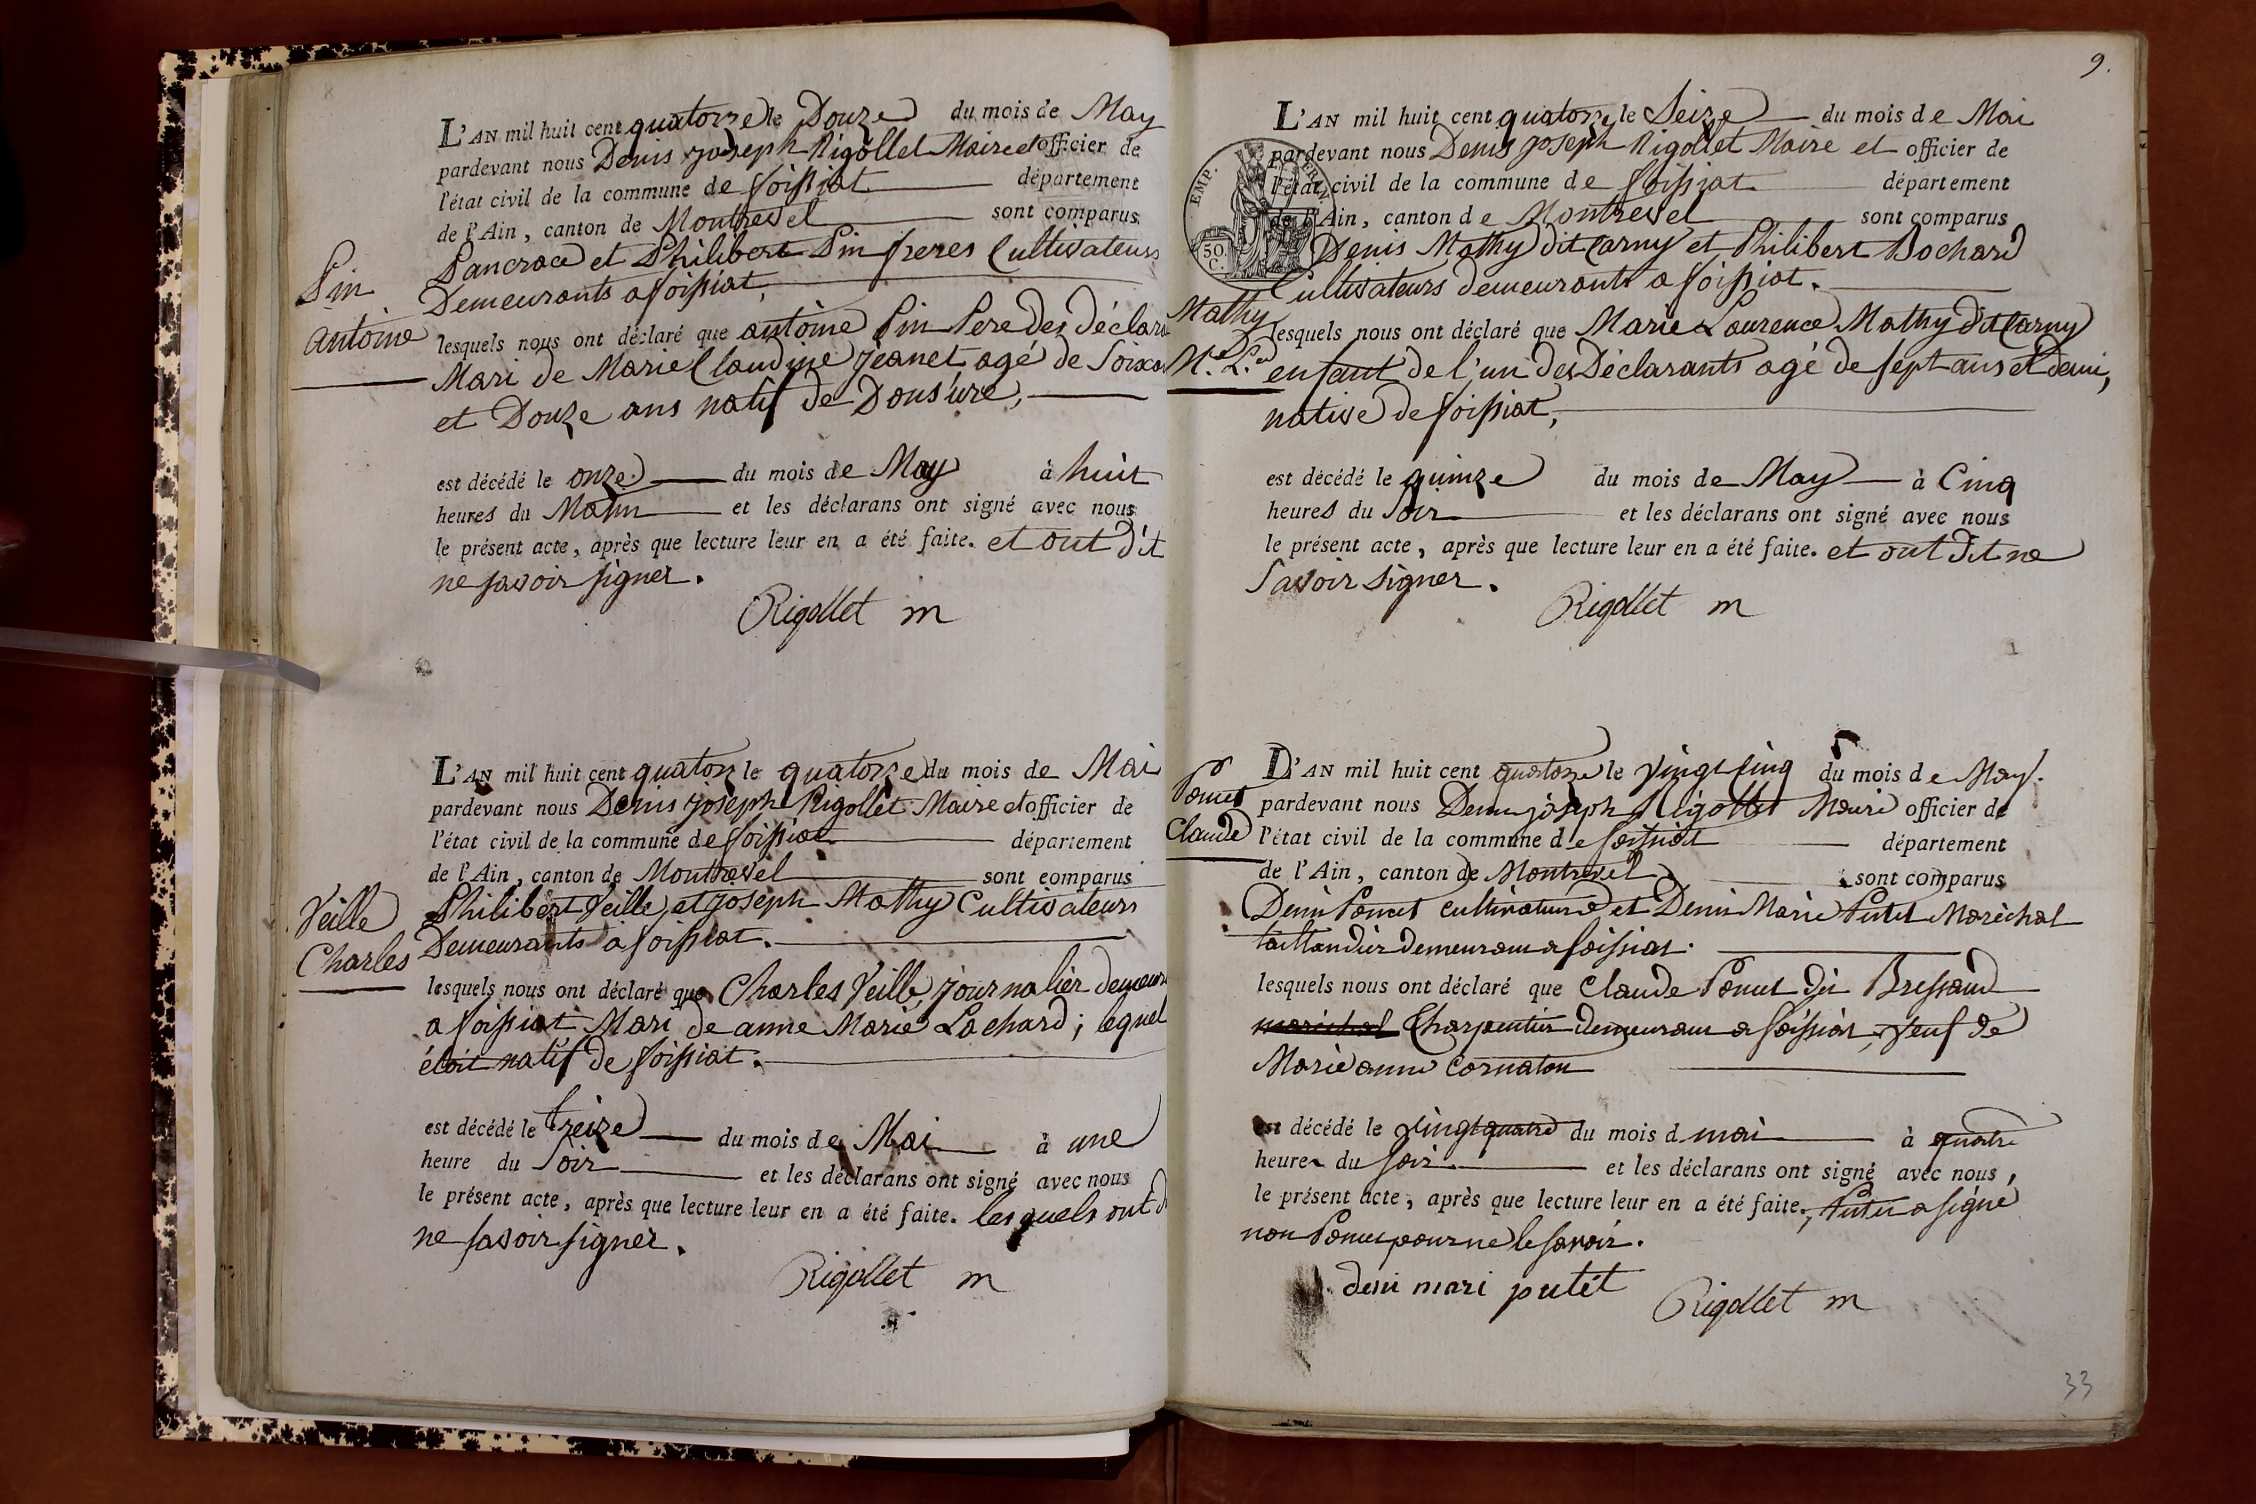 8
L'AN mil huit cent quatorze le Douze du mois de May
pardevant nous Denis joseph Rigollet Maire et officier de
l'état civil de la commune de foissiat département
de l'Ain, canton de Montrevel sont comparus
Pancrace et Philibert Pin freres Cultivateurs
Demeurants a foissiat,
Pin
antoine
lesquels nous ont déclaré que antoine Pin Pere Des Déclara
Mari de Marie Claudine Jeanet agé de Soixan
et Douze ans natif de Dons'ure,
est décédé le onze du mois de May à huit
heures du Matin et les déclarans ont signé avec nous
le présent acte, après que lecture leur en a été faite. et ont Dit
ne savoir signer.
Rigollet m
L'AN mil huit cent quatorz le quatorze du mois de Mai
pardevant nous Denis joseph Rigollet Maire et officier de
l'état civil de la commune de foissiat département
de l'Ain, canton de Montrevel sont comparus
Philibert Veille, et joseph Mathy Cultivateurs
Demeurants a foissiat.
Veille
Charles
lesquels nous ont déclaré que Charles Veille, journalier demeura
a foissiat Mari de anne Marie Lachard; lequel
étoit natif de foissiat.
est décédé le treize du mois de Mai à une
heure du Soir et les déclarans ont signé avec nous
le présent acte, après que lecture leur en a été faite. lesquels ont d
ne savoir signer.
Rigollet m
9.
L'AN mil huit cent quatorze le Seize du mois de Mai
pardevant nous Denis joseph Rigollet Maire et officier de
l'état civil de la commune de foissiat département
de l'Ain, canton de Montrevel sont comparus
EMP. FRAN.
50.
C.
Denis Mathy dit Carny et Philibert Bochard
Cultivateurs demeurants a foissiat.
Mathy
M.e L.ce
lesquels nous ont déclaré que Marie Laurence Mathy dit Carny
enfant de l'un des Déclarants agé de sept ans et demi,
native de foissiat,
est décédé le quinze du mois de May à Cinq
heures du Soir et les déclarans ont signé avec nous
le présent acte, après que lecture leur en a été faite. et ont dit ne
Savoir signer.
Rigollet m
L'AN mil huit cent quatorze le vingt cinq du mois de May.
Poncet
Claude
pardevant nous Denis joseph Rigollet Maire officier de
l'état civil de la commune de foissiat département
de l'Ain, canton de Montrevel sont comparus
Denis Poncet cultivateur et Denis Marie Putet Maréchal
taillandier demeurant a foissiat.
lesquels nous ont déclaré que Claude Poncet dit Bressand
maréchal Charpentier demeurant a foissiat, veuf de
Marie anne Cornaton
est décédé le vingt quatre du mois d mai à quatre
heures du soir et les déclarans ont signé avec nous,
le présent acte, après que lecture leur en a été faite., Putet a signé
non Poncet pour ne le savoir.
deni mari putet
Rigollet m
33